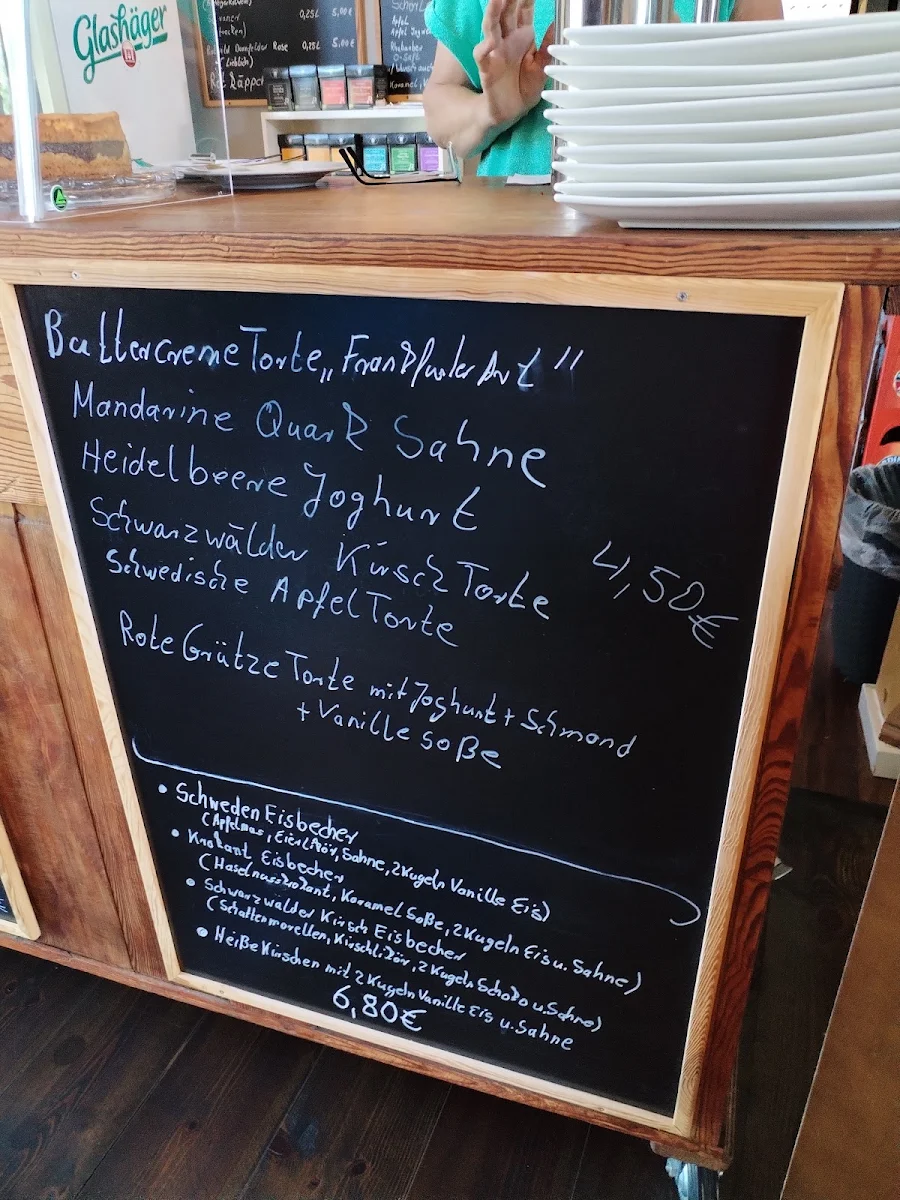 Glashäger
0,25L 5,00€
Dornfelder Rose 0,25L 5,00€
Apfel
Rhabarber
ButtercremeTorte „Frankfurter Art"
Mandarine Quark Sahne
Heidelbeere Joghurt
Schwarzwälder Kirsch Torte
4,50€
Schwedische ApfelTorte
Rote Grütze Torte mit Joghurt + Schmand
+ Vanille soße
• Schweden Eisbecher
(Apfelmus, Eierlikör, Sahne, 2 Kugeln Vanille Eis)
• Krokant Eisbecher
(Haselnusskrokant, Karamel Soße, 2 Kugeln Eis u. Sahne)
• Schwarzwälder Kirsch Eisbecher
(Schattenmorellen, Kirschlikör, 2 Kugeln Schoko u. Sahne)
• Heiße Kirschen mit 2 Kugeln Vanille Eis u. Sahne
6,80€